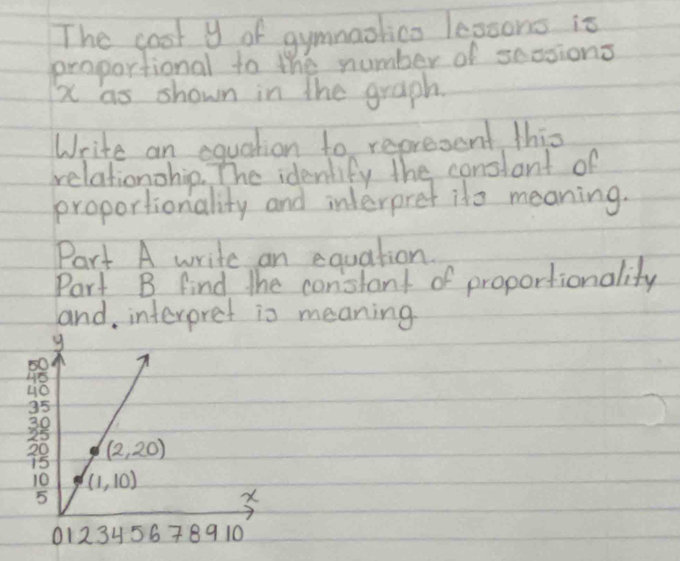 The cost y of gymnastics lessons is
proportional to the number of sessions
x as shown in the graph.
Write an equation to represent this
relationship. The identify the constant of
proportionality and interpret its meaning.
Part A write an equation.
Part B find the constant of proportionality
and. interpret is meaning
y
50
45
40
35
30
25
20
15
10
5
(2,20)
(1,10)
x
0 1 2 3 4 5 6 7 8 9 10